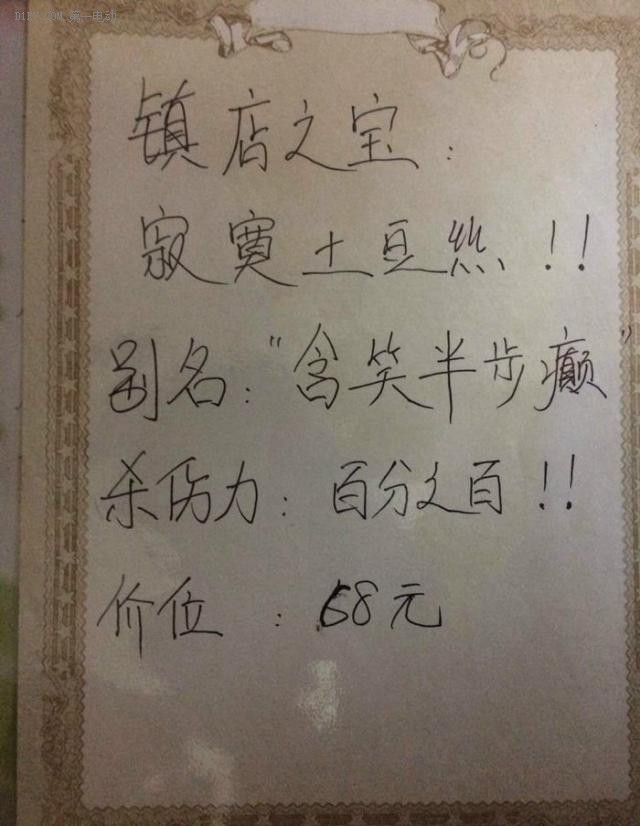 D1EV.COM 第一电动
镇店之宝：
寂寞土豆丝！！
别名："含笑半步癫"
杀伤力：百分之百！！
价位：68元